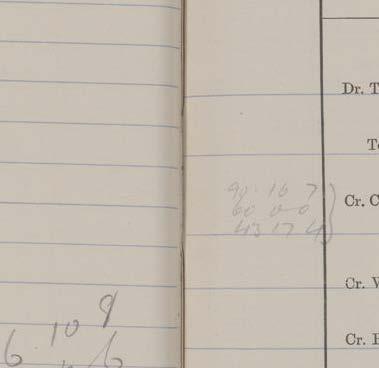 Dr. T
T
90 16 7
Cr. C
60 0 0
43 17 4
Cr.
10 9
Cr.
6 6